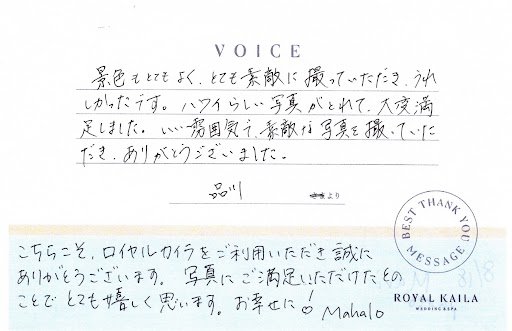 VOICE
景色もとてもよく、とても素敵に撮っていただき、うれ
しかったです。ハワイらしい写真がとれて、大変満
足しました。いい雰囲気で、素敵な写真を撮っていた
だき、ありがとうございました。
品川
より
BEST THANK YOU MESSAGE
こちらこそ、ロイヤルカイラをご利用いただき誠に
ありがとうございます。写真にご満足いただけたとの
ことでとても嬉しく思います。お幸せに! Mahalo
ROYAL KAILA
WEDDING & SPA